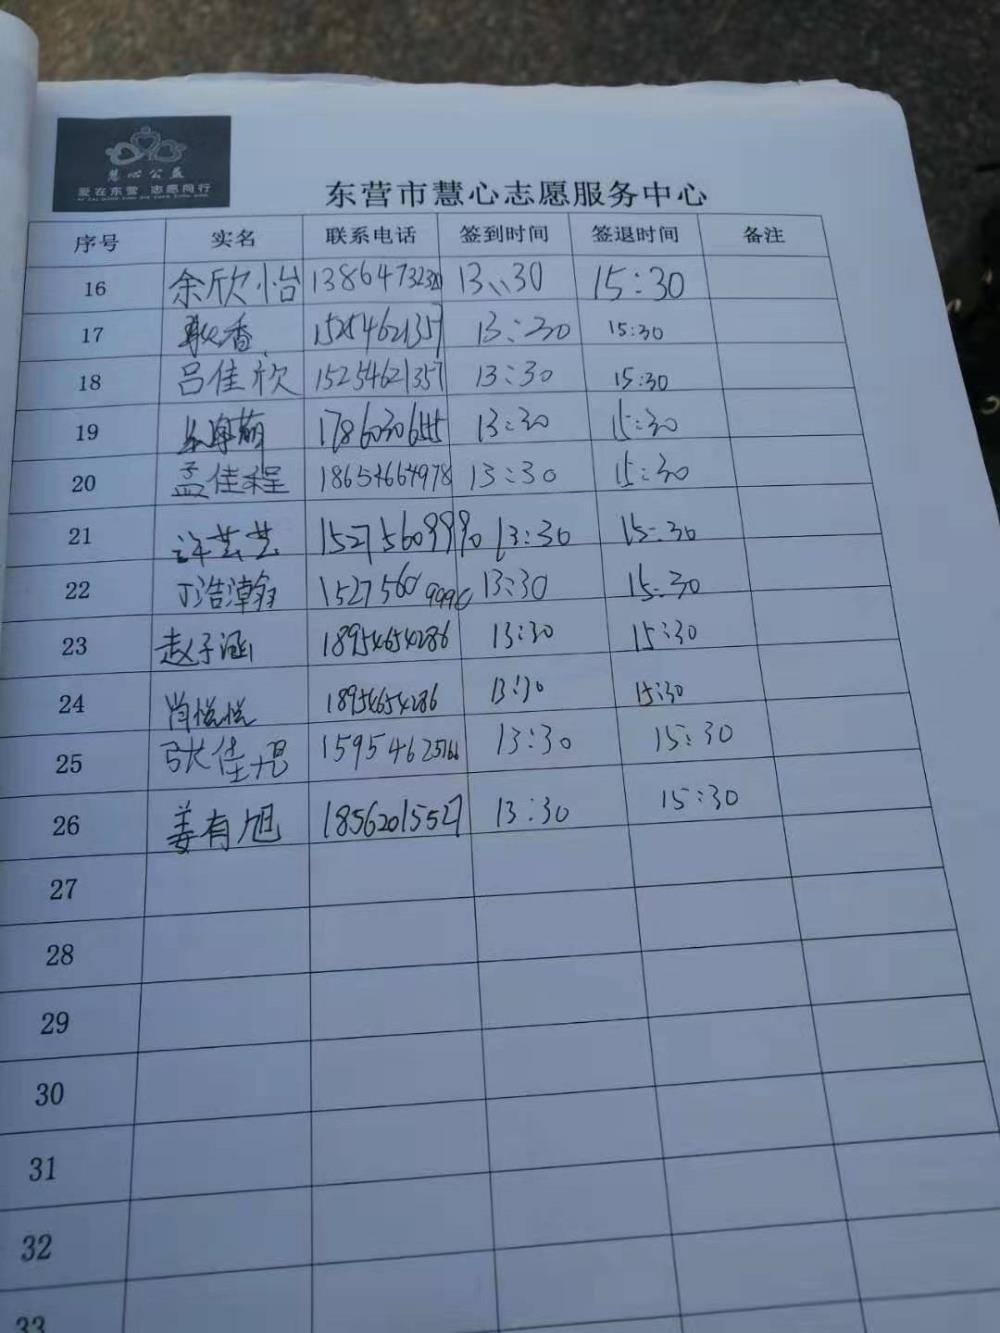 慧心公益
爱在东营 志愿同行
东营市慧心志愿服务中心
序号 实名 联系电话 签到时间 签退时间 备注
16 余欣怡 13:30 15:30
17 耿香 15254621357 13:30 15:30
18 吕佳欣 15254621357 13:30 15:30
19 13:30 15:30
20 孟佳程 18654664978 13:30 15:30
21 许芸芸 15275609990 13:30 15:30
22 丁浩瀚 15275609990 13:30 15:30
23 赵子涵 18954654286 13:30 15:30
24 肖悦悦 18954654286 13:30 15:30
25 13:30 15:30
26 姜有旭 18562015527 13:30 15:30
27
28
29
30
31
32
33